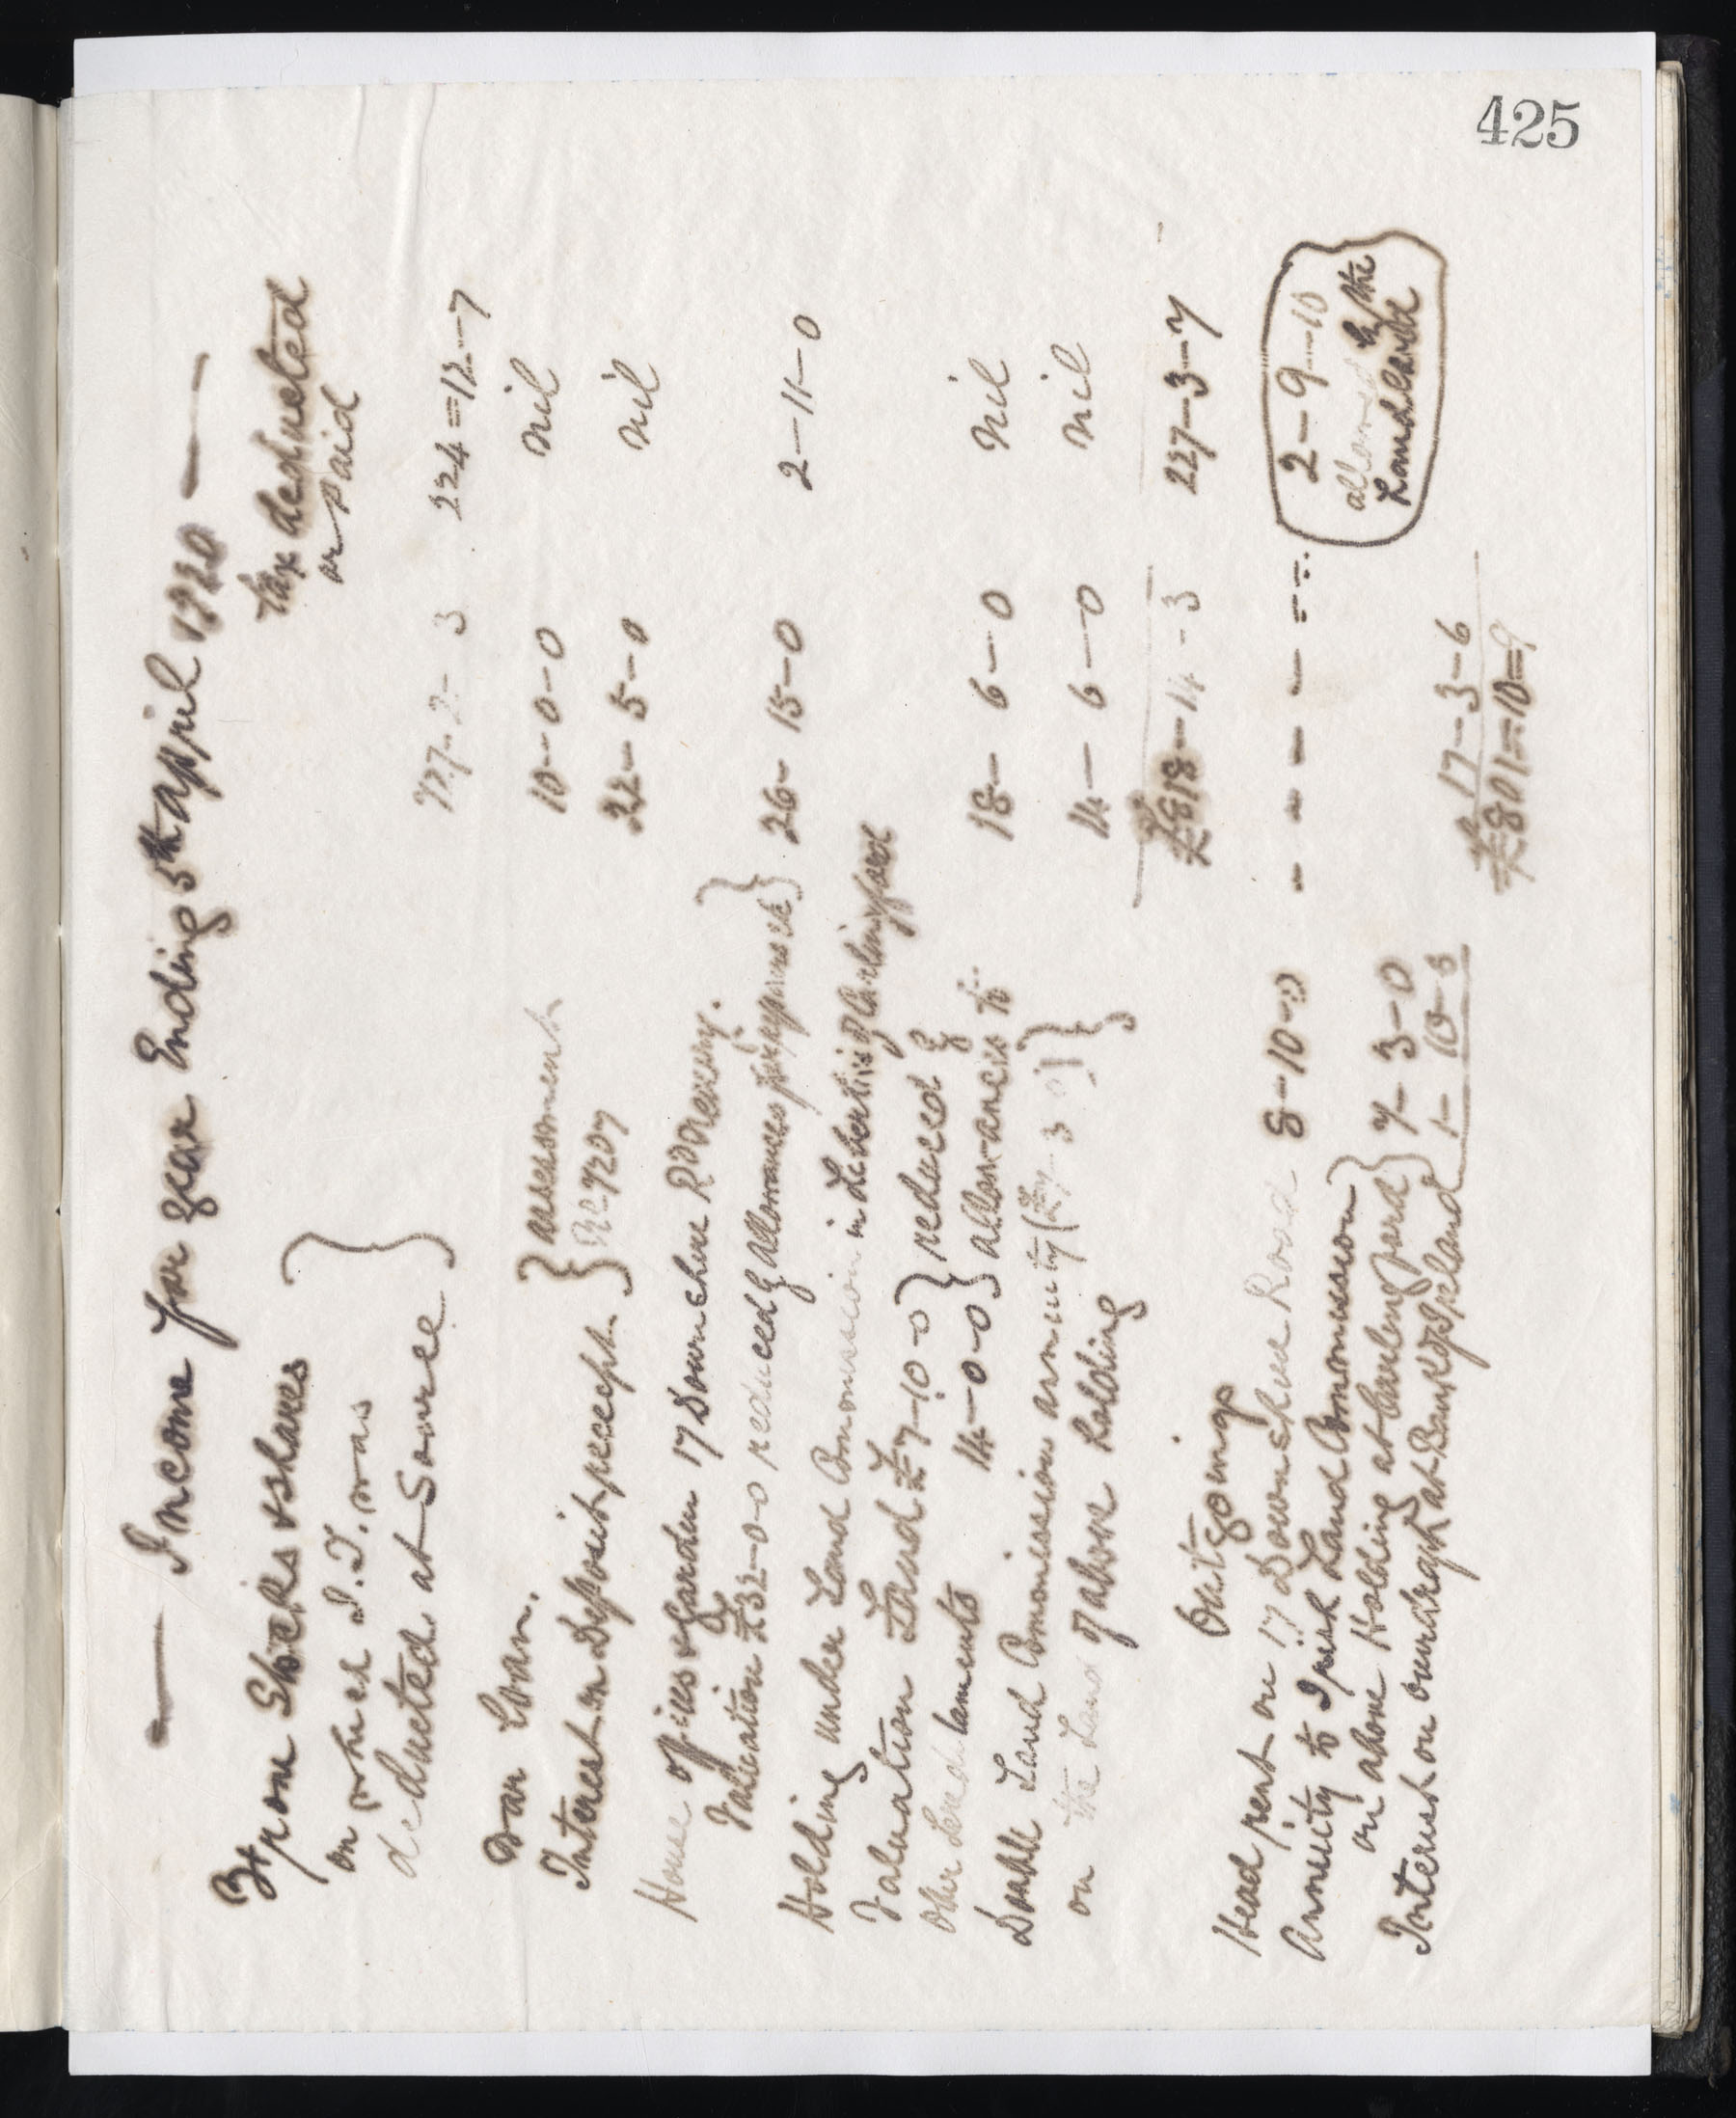 425
— Income for year Ending 5th april 1920 —
tax deducted
or paid
From Stocks & shares
on which I.T. was
deducted at Source } 727-2-3 224=12-7
War Loan. } assessment 10-0-0 nil
Interest on Deposit receipt } No 7207 22-5-0 nil
House offices & garden 17 Downshire Rd Newry. }
Valuation £32-0-0 reduced by allowances for expenses &c } 26-15-0 2-11-0
Holding under Land Commission in Liberties of Carlingford
Valuation Land £7-10-0 } reduced by
Other hereditaments 14-0-0 } allowances to 18-6-0 nil
Double Land Commission annuity (£7-3-0) }
on the Land of above holding } 14-6-0 nil
£818-14-3 227-3-7
Outgoings
Head rent on 17 Downshire Road 8-10-0 2-9-10
Annuity to Irish Land Commission } allowed by the
on above Holding at Carlingford } 7-3-0 Landlords
Interest on overdraft at Bank of Ireland 1-10-6 £17-3-6
£801=10=9